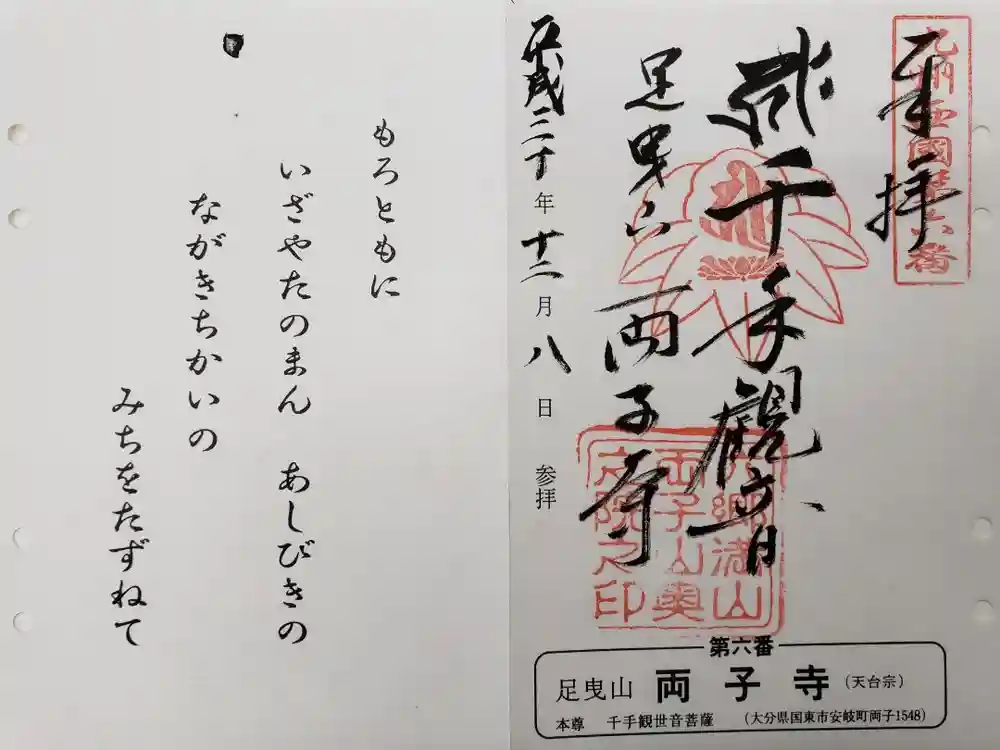 九州西國第六番
奉拝
千手観音
足曳山
両子寺
平成二十年十二月八日 参拝
六郷満山
両子山奥
之院之印
もろともに
いざやたのまん あしびきの
ながきちかいの
みちをたずねて
第六番
足曳山 両子寺 (天台宗)
本尊 千手観世音菩薩 (大分県国東市安岐町両子1548)